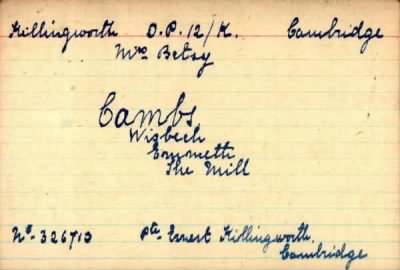 Killingworth O.P. 12/K. Cambridge
Mrs Betsy
Cambs
Wisbech
Emmeth
The Mill
No- 326713 Pte Ernest Killingworth.
Cambridge